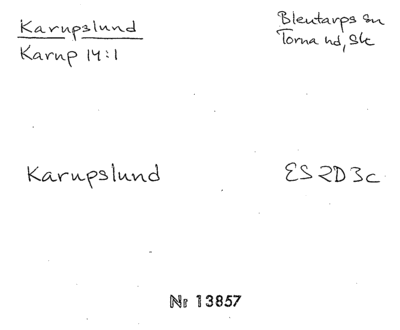 Karupslund
Karup 14:1
Blentarps sn
Torna hd, Sk
Karupslund
ES 2D3c
Nr 13857